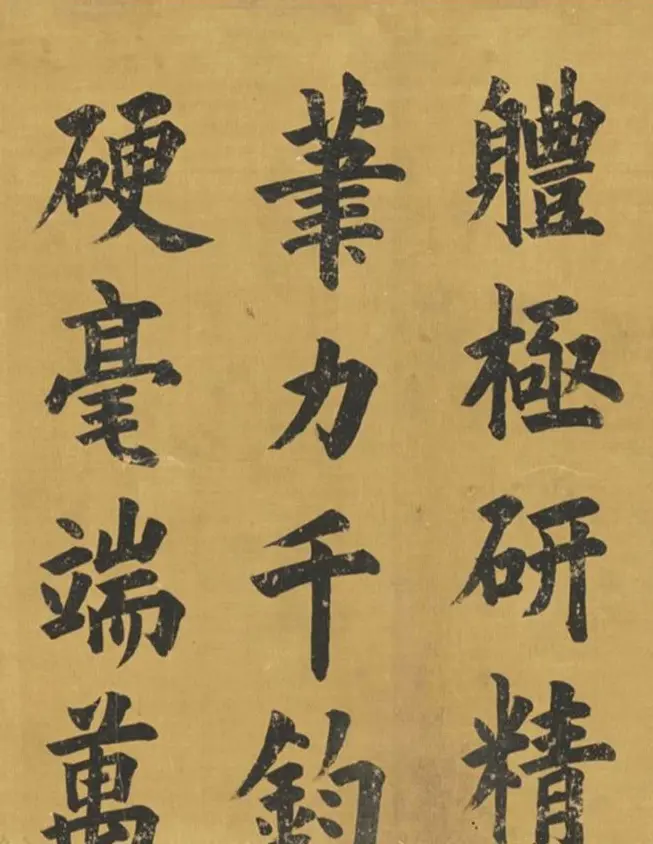 軆極研精
筆力千鈞
硬毫端萬